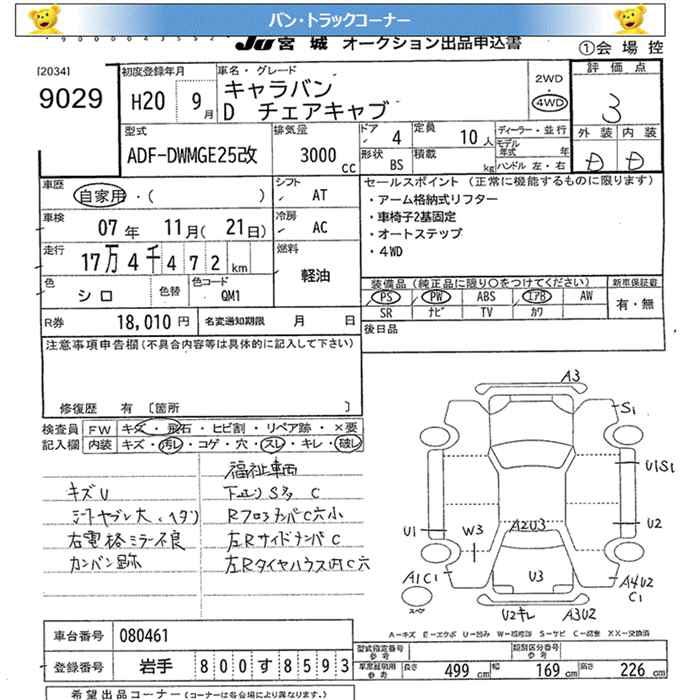 バン・トラックコーナー
JU 宮城 オークション出品申込書
①会場控
[2034]
9029
初度登録年月
H20 9月
車名・グレード
キャラバン
D チェアキャブ
2WD
・
4WD
評価点
3
外装 内装
D D
型式
ADF-DWMGE25改
排気量
3000 cc
ドア 4
定員 10人
形状 BS
積載 kg
ディーラー・並行
モデル年式 年
ハンドル 左・右
車歴
自家用・( )
シフト
AT
セールスポイント (正常に機能するものに限ります)
・アーム格納式リフター
・車椅子2基固定
・オートステップ
・4WD
車検
07年 11月(21日)
冷房
AC
走行
17万4千472km
燃料
軽油
色
シロ
色替
色コード
QM1
装備品(純正品に限り○をつけてください)
PS PW ABS エアB AW
SR ナビ TV カワ
新車保証書
有・無
R券
18,010円
名変通知期限 月 日
後日品
注意事項申告欄(不具合内容等は具体的に記入して下さい)
修復歴 有 〔箇所 〕
検査員 FW キズ・飛石・ヒビ割・リペア跡・×要
記入欄 内装 キズ・汚レ・コゲ・穴・スレ・キレ・破レ
福祉車両
キズU
下エンSタ C
シートヤブレ大、ヘタリ
RフロンナンバC穴小
右電格ミラー不良
左RサイドナンバC
カンバン跡
左Rタイヤハウス内C穴
A3
S1
U1S1
U1
W3
A2U3
U2
A1C1
U3
A4U2
C1
スペア
U2キレ
A3U2
A=キズ E=エクボ U=凹み W=補修跡 S=サビ C=腐食 XX=交換済
車台番号
080461
型式指定番号
参考
類別区分番号
参考
登録番号
岩手 800す8593
車庫証明用
参考
長さ 499cm
幅 169cm
高さ 226cm
希望出品コーナー(コーナーは各会場により異なります。)